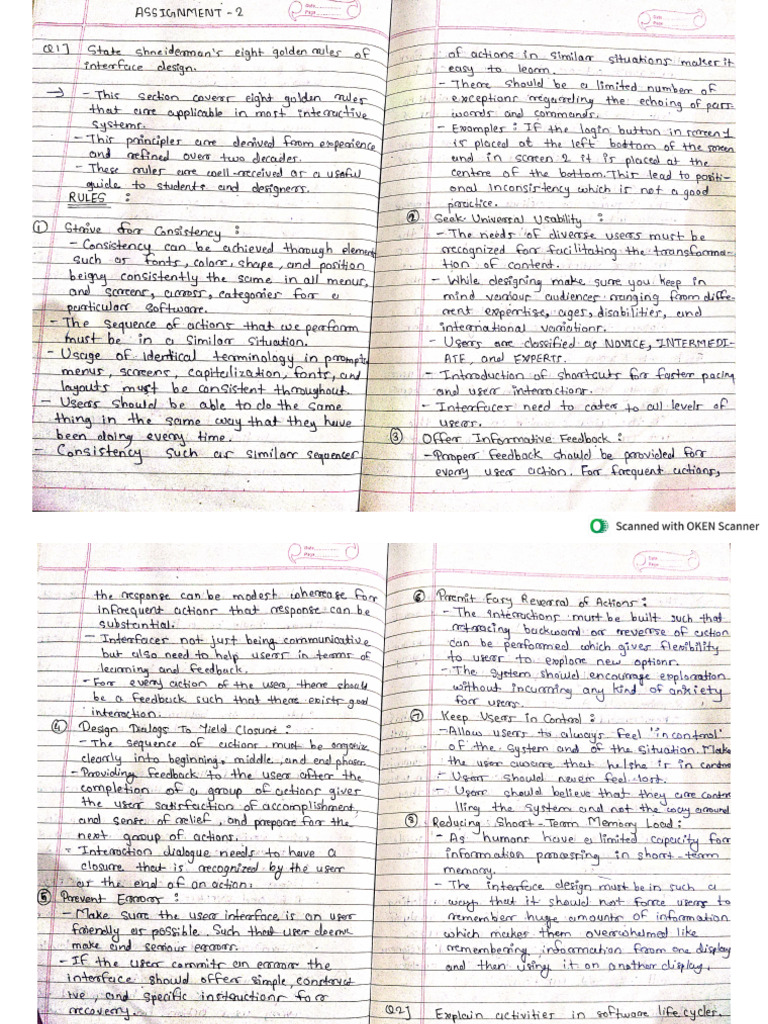 ASSIGNMENT - 2
Q1] State Shneiderman's eight golden rules of
interface design.
→ - This section covers eight golden rules
that are applicable in most interactive
systems.
- This principles are derived from experience
and refined over two decades.
- These rules are well-received as a useful
guide to students and designers.
RULES :
① Strive for Consistency :
- Consistency can be achieved through elements
such as fonts, color, shape, and position
being consistently the same in all menus,
and screens, across, categories for a
particular software.
- The sequence of actions that we perform
must be in a similar situation.
- Usage of identical terminology in prompts
menus, screens, capitalization, fonts, and
layouts must be consistent throughout.
- Users should be able to do the same
thing in the same way that they have
been doing every time.
- Consistency such as similar sequences
of actions in similar situations makes it
easy to learn.
- There should be a limited number of
exceptions regarding the echoing of pass-
words and commands.
- Examples : If the login button in screen 1
is placed at the left bottom of the screen
and in screen 2 it is placed at the
centre of the bottom. This lead to positi-
onal inconsistency which is not a good
practice.
② Seek Universal Usability :
- The needs of diverse users must be
recognized for facilitating the transforma-
tion of content.
- While designing make sure you keep in
mind various audiences ranging from diffe-
rent expertise, ages, disabilities, and
international variations.
- Users are classified as NOVICE, INTERMEDI-
ATE, and EXPERTS.
- Introduction of shortcuts for faster pacing
and user interactions.
- Interfaces need to caters to all levels of
users.
③ Offer Informative Feedback :
- Proper feedback should be provided for
every user action. For frequent actions,
Scanned with OKEN Scanner
the response can be modest wherease for
infrequent actions that response can be
substantial.
- Interfaces not just being communicative
but also need to help users in terms of
learning and feedback.
- For every action of the user, there should
be a feedback such that there exists good
interaction.
④ Design Dialogs To Yield Closure :
- The sequence of actions must be organize
clearly into beginning, middle, and end phases.
- Providing feedback to the user after the
completion of a group of actions gives
the user satisfaction of accomplishment,
and sense of relief, and prepare for the
next group of actions.
- Interaction dialogue needs to have a
closure that is recognized by the user
as the end of an action.
⑤ Prevent Errors :
- Make sure the user interface is an user
friendly as possible. Such that user
make and serious errors.
- If the user commits an error the
interface should offer simple, construct
ive, and specific instructions for
recovery.
⑥ Permit Easy Reversal of Actions :
- The interactions must be built such that
retracing backward or reverse of action
can be performed which gives flexibility
to user to explore new options.
- The system should encourage exploration
without incurring any kind of anxiety
for users.
⑦ Keep Users in Control :
- Allow users to always feel 'in control'
of the system and of the situation. Make
the user aware that he/she is in control
- User should never feel lost.
- User should believe that they are contro
lling the system and not the way around
⑧ Reducing Short-Term Memory Load :
- As humans have a limited capacity for
information processing in short-term
memory.
- The interface design must be in such a
way that it should not force users to
remember huge amounts of information
which makes them overwhelmed like
remembering information from one display
and then using it on another display.
Q2] Explain activities in software life cycles.